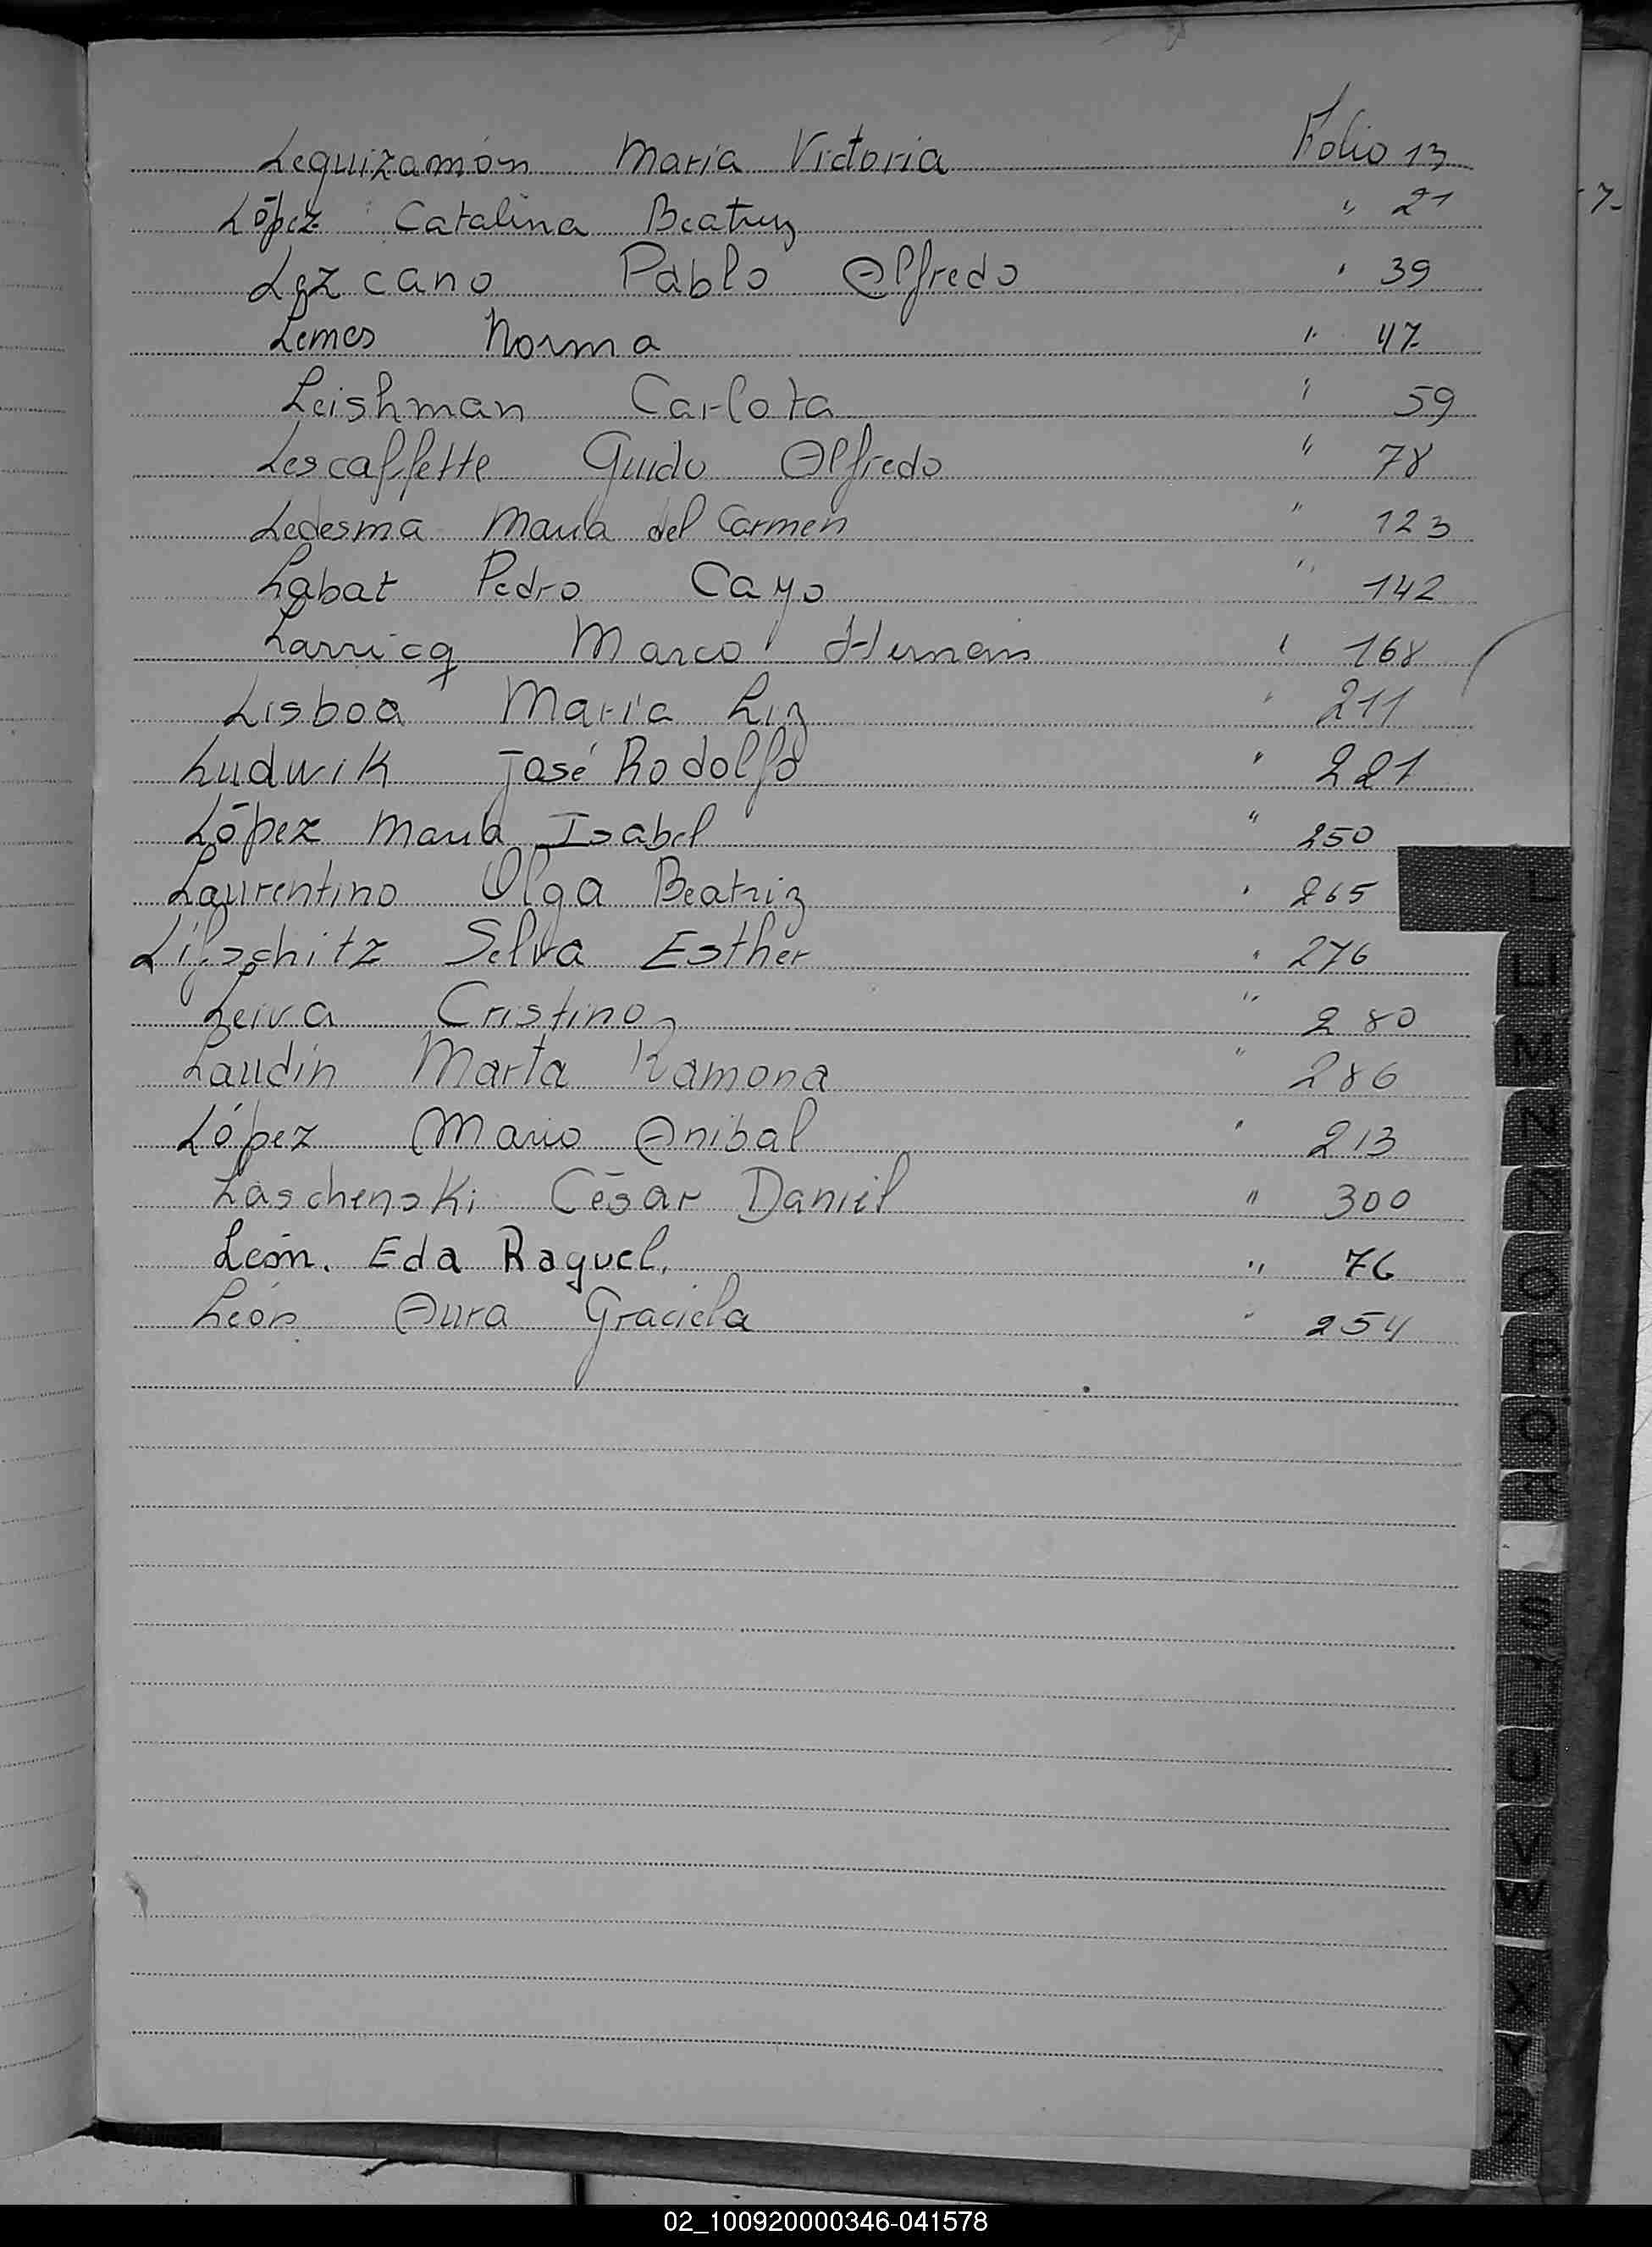 Leguizamón María Victoria Folio 13
López Catalina Beatriz " 21
Lezcano Pablo Alfredo " 39
Lemes Norma " 47
Leishman Carlota " 59
Lescaffette Guido Alfredo " 78
Ledesma María del Carmen " 123
Labat Pedro Cayo " 142
Larricq Marco Hernán " 168
Lisboa María Liz " 211
Ludwik José Rodolfo " 221
López María Isabel " 250
Laurentino Olga Beatriz " 265
Lifschitz Selva Esther " 276
Leiva Cristino " 280
Laudín Marta Ramona " 286
López Mario Anibal " 213
Laschenski César Daniel " 300
León. Eda Raquel. " 76
León Aura Graciela " 254
L
LL
M
N
Ñ
O
P
Q
S
U
V
W
X
Y
Z
02_100920000346-041578